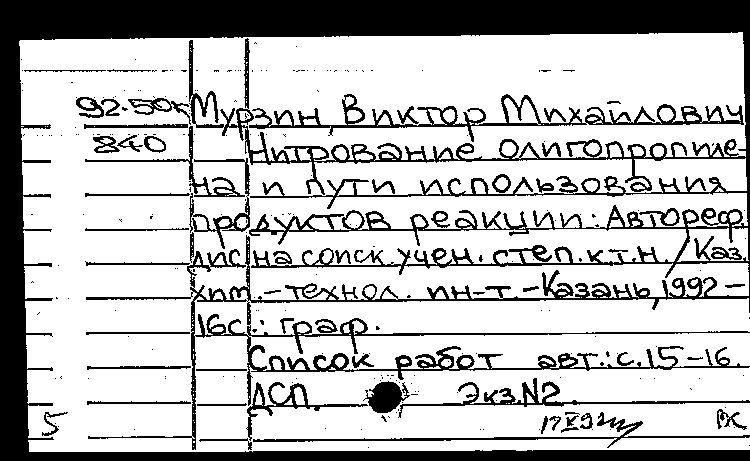 92-50к Мурзин, Виктор Михайлович
840 Нитрование олигопропиле-
на и пути использования
продуктов реакции: Автореф.
дис на соиск. учен. степ. к.т.н. / Каз.
хим.-технол. ин-т.-Казань, 1992-
16с.: граф.
Список работ авт.: с.15-16.
ДСП. Экз.N2.
5 ВС